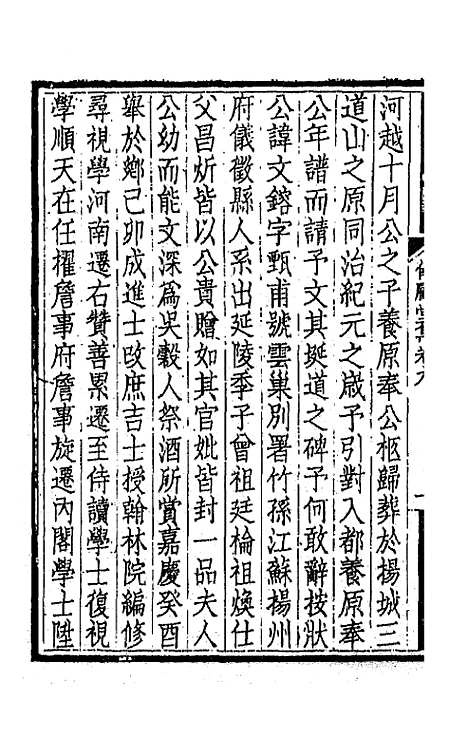 河越十月公之子養原奉公柩歸葬於楊城三
道山之原同治紀元之歲予引對入都養原奉
公年譜而請予文其挻道之碑予何敢辭按狀
公諱文鎔字甄甫號雲巢别署竹孫江蘇楊州
府儀徵縣人系出延陵季子曾祖廷楡祖煥仕
父昌炘皆以公貴贈如其官妣皆封一品夫人
公幼而能文深爲吳穀人祭酒所賞嘉慶癸酉
舉於鄉己卯成進士改庶吉士授翰林院編修
尋視學河南遷右贊善累遷至侍讀學士復視
學順天在任擢詹事府詹事旋遷內閣學士陞